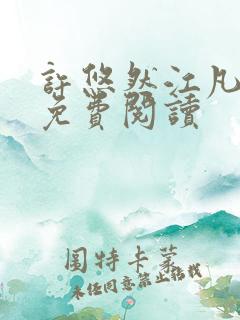 許悠然江凡
免費閱讀
圖特卡蒙
未经同意禁止搭载